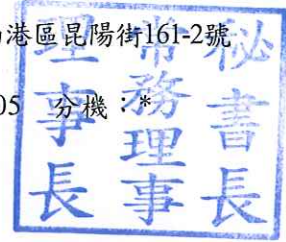 港區昆陽街161-2號
05 分機：*
秘書長
常務理事
理事長